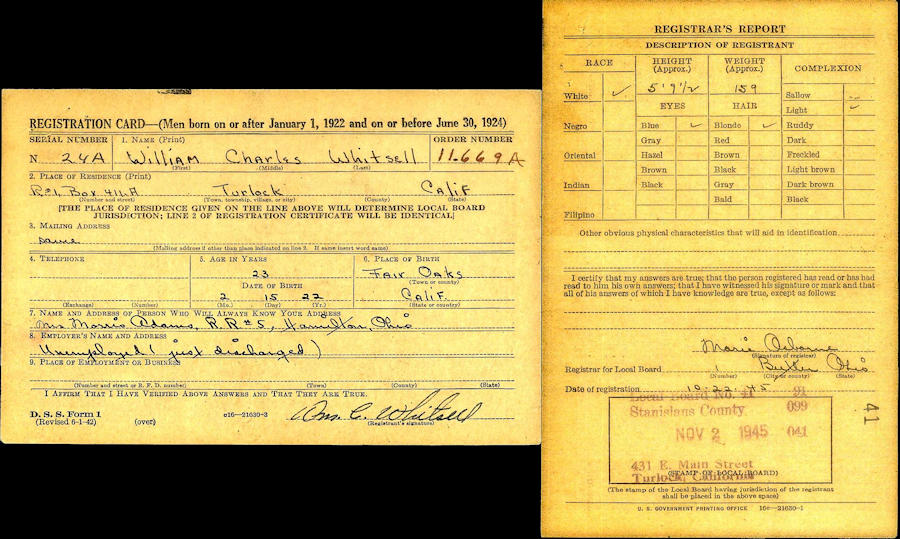 REGISTRATION CARD—(Men born on or after January 1, 1922 and on or before June 30, 1924)
SERIAL NUMBER 1. NAME (Print) ORDER NUMBER
N 24A William Charles Whitsell 11.669A
(First) (Middle) (Last)
2. PLACE OF RESIDENCE (Print)
R#1, Box 411-A Turlock Calif
(Number and street) (Town, township, village, or city) (County) (State)
[THE PLACE OF RESIDENCE GIVEN ON THE LINE ABOVE WILL DETERMINE LOCAL BOARD
JURISDICTION; LINE 2 OF REGISTRATION CERTIFICATE WILL BE IDENTICAL]
3. MAILING ADDRESS
same
(Mailing address if other than place indicated on line 2. If same insert word same)
4. TELEPHONE 5. AGE IN YEARS 6. PLACE OF BIRTH
23 Fair Oaks
DATE OF BIRTH (Town or county)
2 15 22 Calif.
(Exchange) (Number) (Mo.) (Day) (Yr.) (State or country)
7. NAME AND ADDRESS OF PERSON WHO WILL ALWAYS KNOW YOUR ADDRESS
Mrs Morris Adams, R.R#5, Hamilton, Ohio
8. EMPLOYER'S NAME AND ADDRESS
Unemployed (just discharged)
9. PLACE OF EMPLOYMENT OR BUSINESS
(Number and street or R. F. D. number) (Town) (County) (State)
I AFFIRM THAT I HAVE VERIFIED ABOVE ANSWERS AND THAT THEY ARE TRUE.
D. S. S. Form 1 e16—21630-3 Wm. C. Whitsell
(Revised 6-1-42) (over) (Registrant's signature)
REGISTRAR'S REPORT
DESCRIPTION OF REGISTRANT
RACE HEIGHT (Approx.) WEIGHT (Approx.) COMPLEXION
White ✓ 5' 9 1/2 159 Sallow
EYES HAIR Light ✓
Negro Blue ✓ Blonde ✓ Ruddy
Gray Red Dark
Oriental Hazel Brown Freckled
Brown Black Light brown
Indian Black Gray Dark brown
Bald Black
Filipino
Other obvious physical characteristics that will aid in identification
I certify that my answers are true; that the person registered has read or has had
read to him his own answers; that I have witnessed his signature or mark and that
all of his answers of which I have knowledge are true, except as follows:
Marie Osborne
(Signature of registrar)
Registrar for Local Board 1 Butler Ohio
(Number) (City or county) (State)
Date of registration 10-22-45
Local Board No. 91
Stanislaus County 099
NOV 2 1945 041
431 E. Main Street
Turlock, California
(STAMP OF LOCAL BOARD)
(The stamp of the Local Board having jurisdiction of the registrant
shall be placed in the above space)
U. S. GOVERNMENT PRINTING OFFICE 16c—21630-1
41